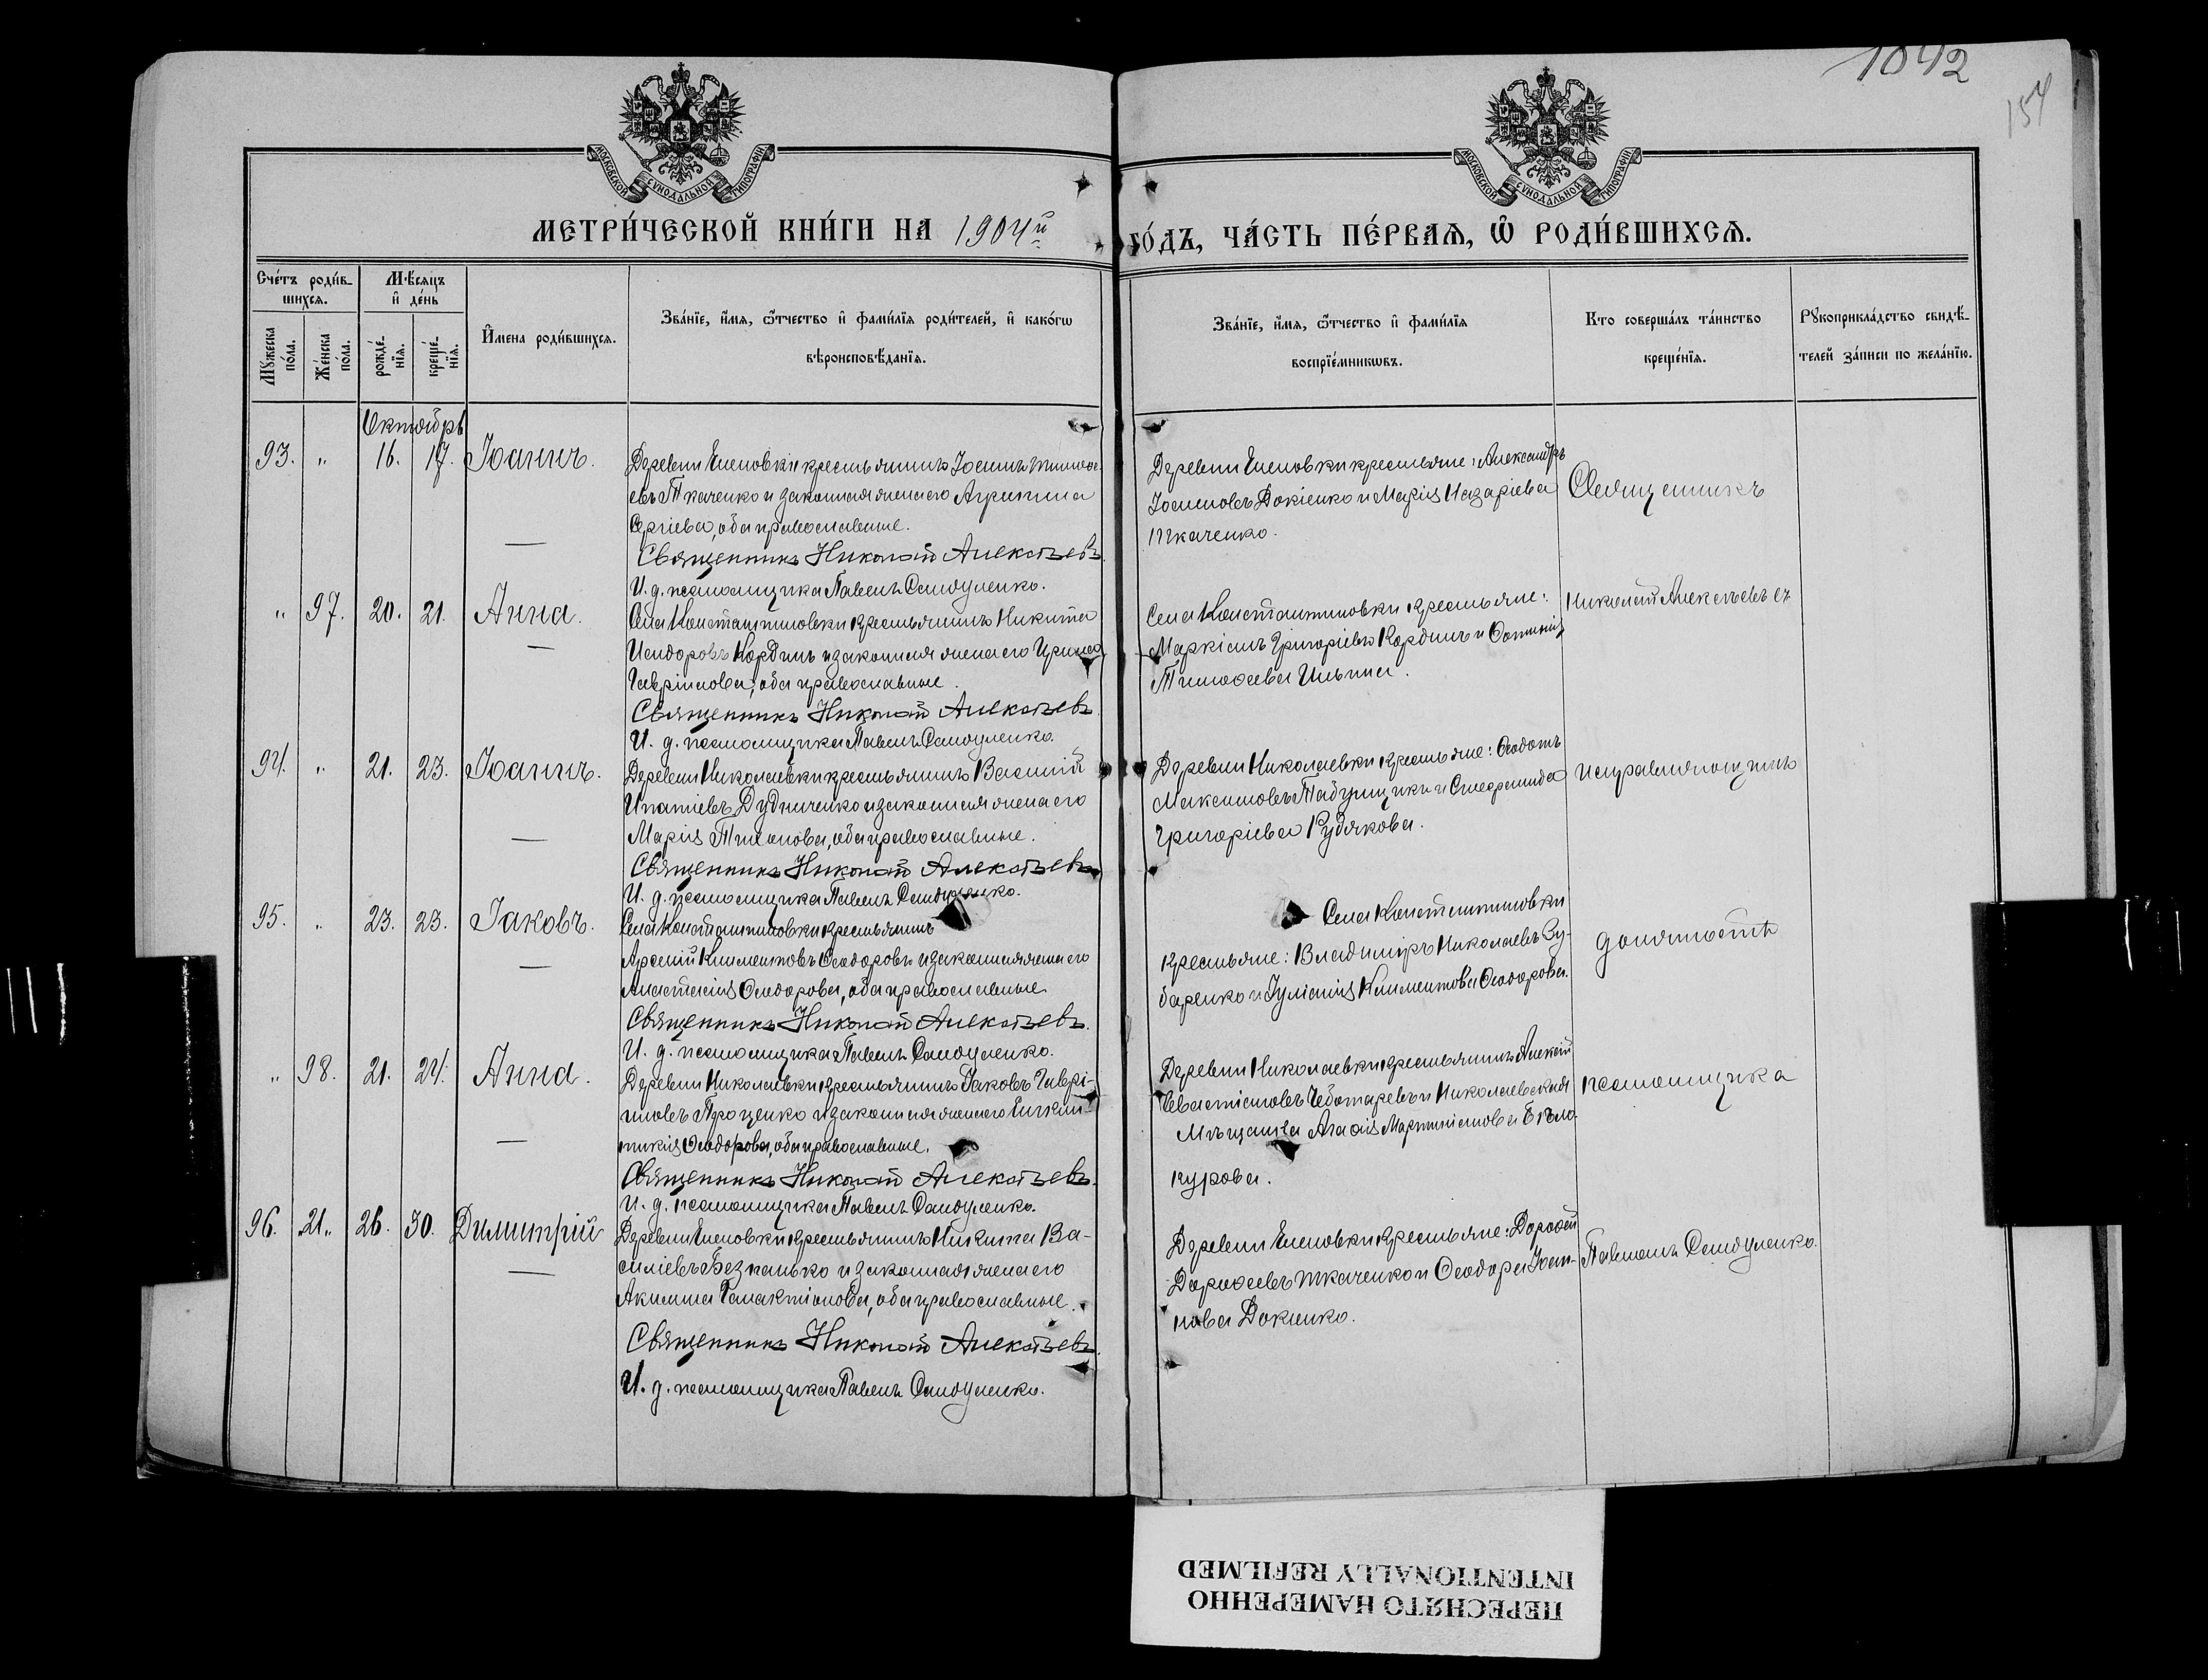 1042
154
МОСКОВСКОЙ СѴНОДАЛЬНОЙ ТИПОГРАФІИ
МОСКОВСКОЙ СѴНОДАЛЬНОЙ ТИПОГРАФІИ
МЕТРИ́ЧЕСКОЙ КНИ́ГИ НА 1904й ГО́ДЪ, ЧА́СТЬ ПЕ́РВАѦ, Ѡ҆ РОДИ́ВШИХСѦ.
Сче́тъ роди́в-
шихсѧ.
Мꙋ́жеска по́ла.
Же́нска по́ла.
Мѣ́сѧцъ
и҆ де́нь
рожде́-
нїѧ.
креще́-
нїѧ.
И҆́мена роди́вшихсѧ.
Зва́нїе, и҆́мѧ, ѻ҆́тчество и҆ фами́лїѧ роди́телей, и҆ како́гѡ
вѣроисповѣ́данїѧ.
Зва́нїе, и҆́мѧ, ѻ҆́тчество и҆ фами́лїѧ
воспрїе́мникѡвъ.
Кто соверша́лъ та́инство
креще́нїѧ.
Рꙋкоприкла́дство свидѣ́-
телей за́писи по жела́нїю.
Октябрь
93. " 16. 17. Іоаннъ.
Деревни Еленовки крестьянинъ Іоаннъ Тимоѳе-
евъ Ткаченко и законная жена его Агрипина
Сергіева, оба православные.
Священникъ Николай Алексѣевъ.
И. д. псаломщика Павелъ Самойленко.
Деревни Еленовки крестьяне: Александръ
Іоанновъ Докіенко и Марія Назаріева
Ткаченко.
Священникъ
" 97. 20. 21. Анна.
Села Константиновки крестьянинъ Никита
Исидоровъ Кординъ и законная жена его Ирина
Гавріилова, оба православные.
Священникъ Николай Алексѣевъ.
И. д. псаломщика Павелъ Самойленко.
Села Константиновки крестьяне:
Маркіанъ Григоріевъ Кординъ и
Тимоѳеева Ильина.
Николай Алексѣевъ съ
94. " 21. 23. Іоаннъ.
Деревни Николаевки крестьянинъ Василій
Ипатіевъ Дудниченко и законная жена его
Марія Тихонова, оба православные.
Священникъ Николай Алексѣевъ
И. д. псаломщика Павелъ Самойленко.
Деревни Николаевки крестьяне: Ѳеодотъ
Максимовъ Табунщикъ и Стефанида
Григоріева Кудякова.
исправляющимъ
95. " 23. 23. Іаковъ.
Села Константиновки крестьянинъ
Арсеній Климентовъ Ѳеодоровъ и законная жена его
Анастасія Ѳеодорова, оба православные
Священникъ Николай Алексѣевъ.
И. д. псаломщика Павелъ Самойленко.
Села Константиновки
крестьяне: Владиміръ Николаевъ Зу-
баренко и Іуліанія Климентова Ѳеодорова.
должность
" 98. 21. 24. Анна.
Деревни Николаевки крестьянинъ Іаковъ Гаврі-
иловъ Проценко и законная жена его
Ѳеодорова, оба православные.
Священникъ Николай Алексѣевъ.
И. д. псаломщика Павелъ Самойленко.
Деревни Николаевки крестьянинъ Алексѣй
Севастіановъ Чеботаревъ и Николаевская
Мѣщанка Агаѳія Мартиніанова Бѣло-
курова.
псаломщика
96. 21. 26. 30. Димитрій
Деревни Еленовки крестьянинъ Никита Ва-
силіевъ Безпалько и законная жена его
Акилина Галактіонова, оба православные.
Священникъ Николай Алексѣевъ.
И. д. псаломщика Павелъ Самойленко.
Деревни Еленовки крестьяне: Дороѳей
Дороѳеевъ Ткаченко и Ѳеодора Іоан-
нова Докіенко.
Павломъ Самойленко.
ПЕРЕСНЯТО НАМЕРЕННО
INTENTIONALLY REFILMED